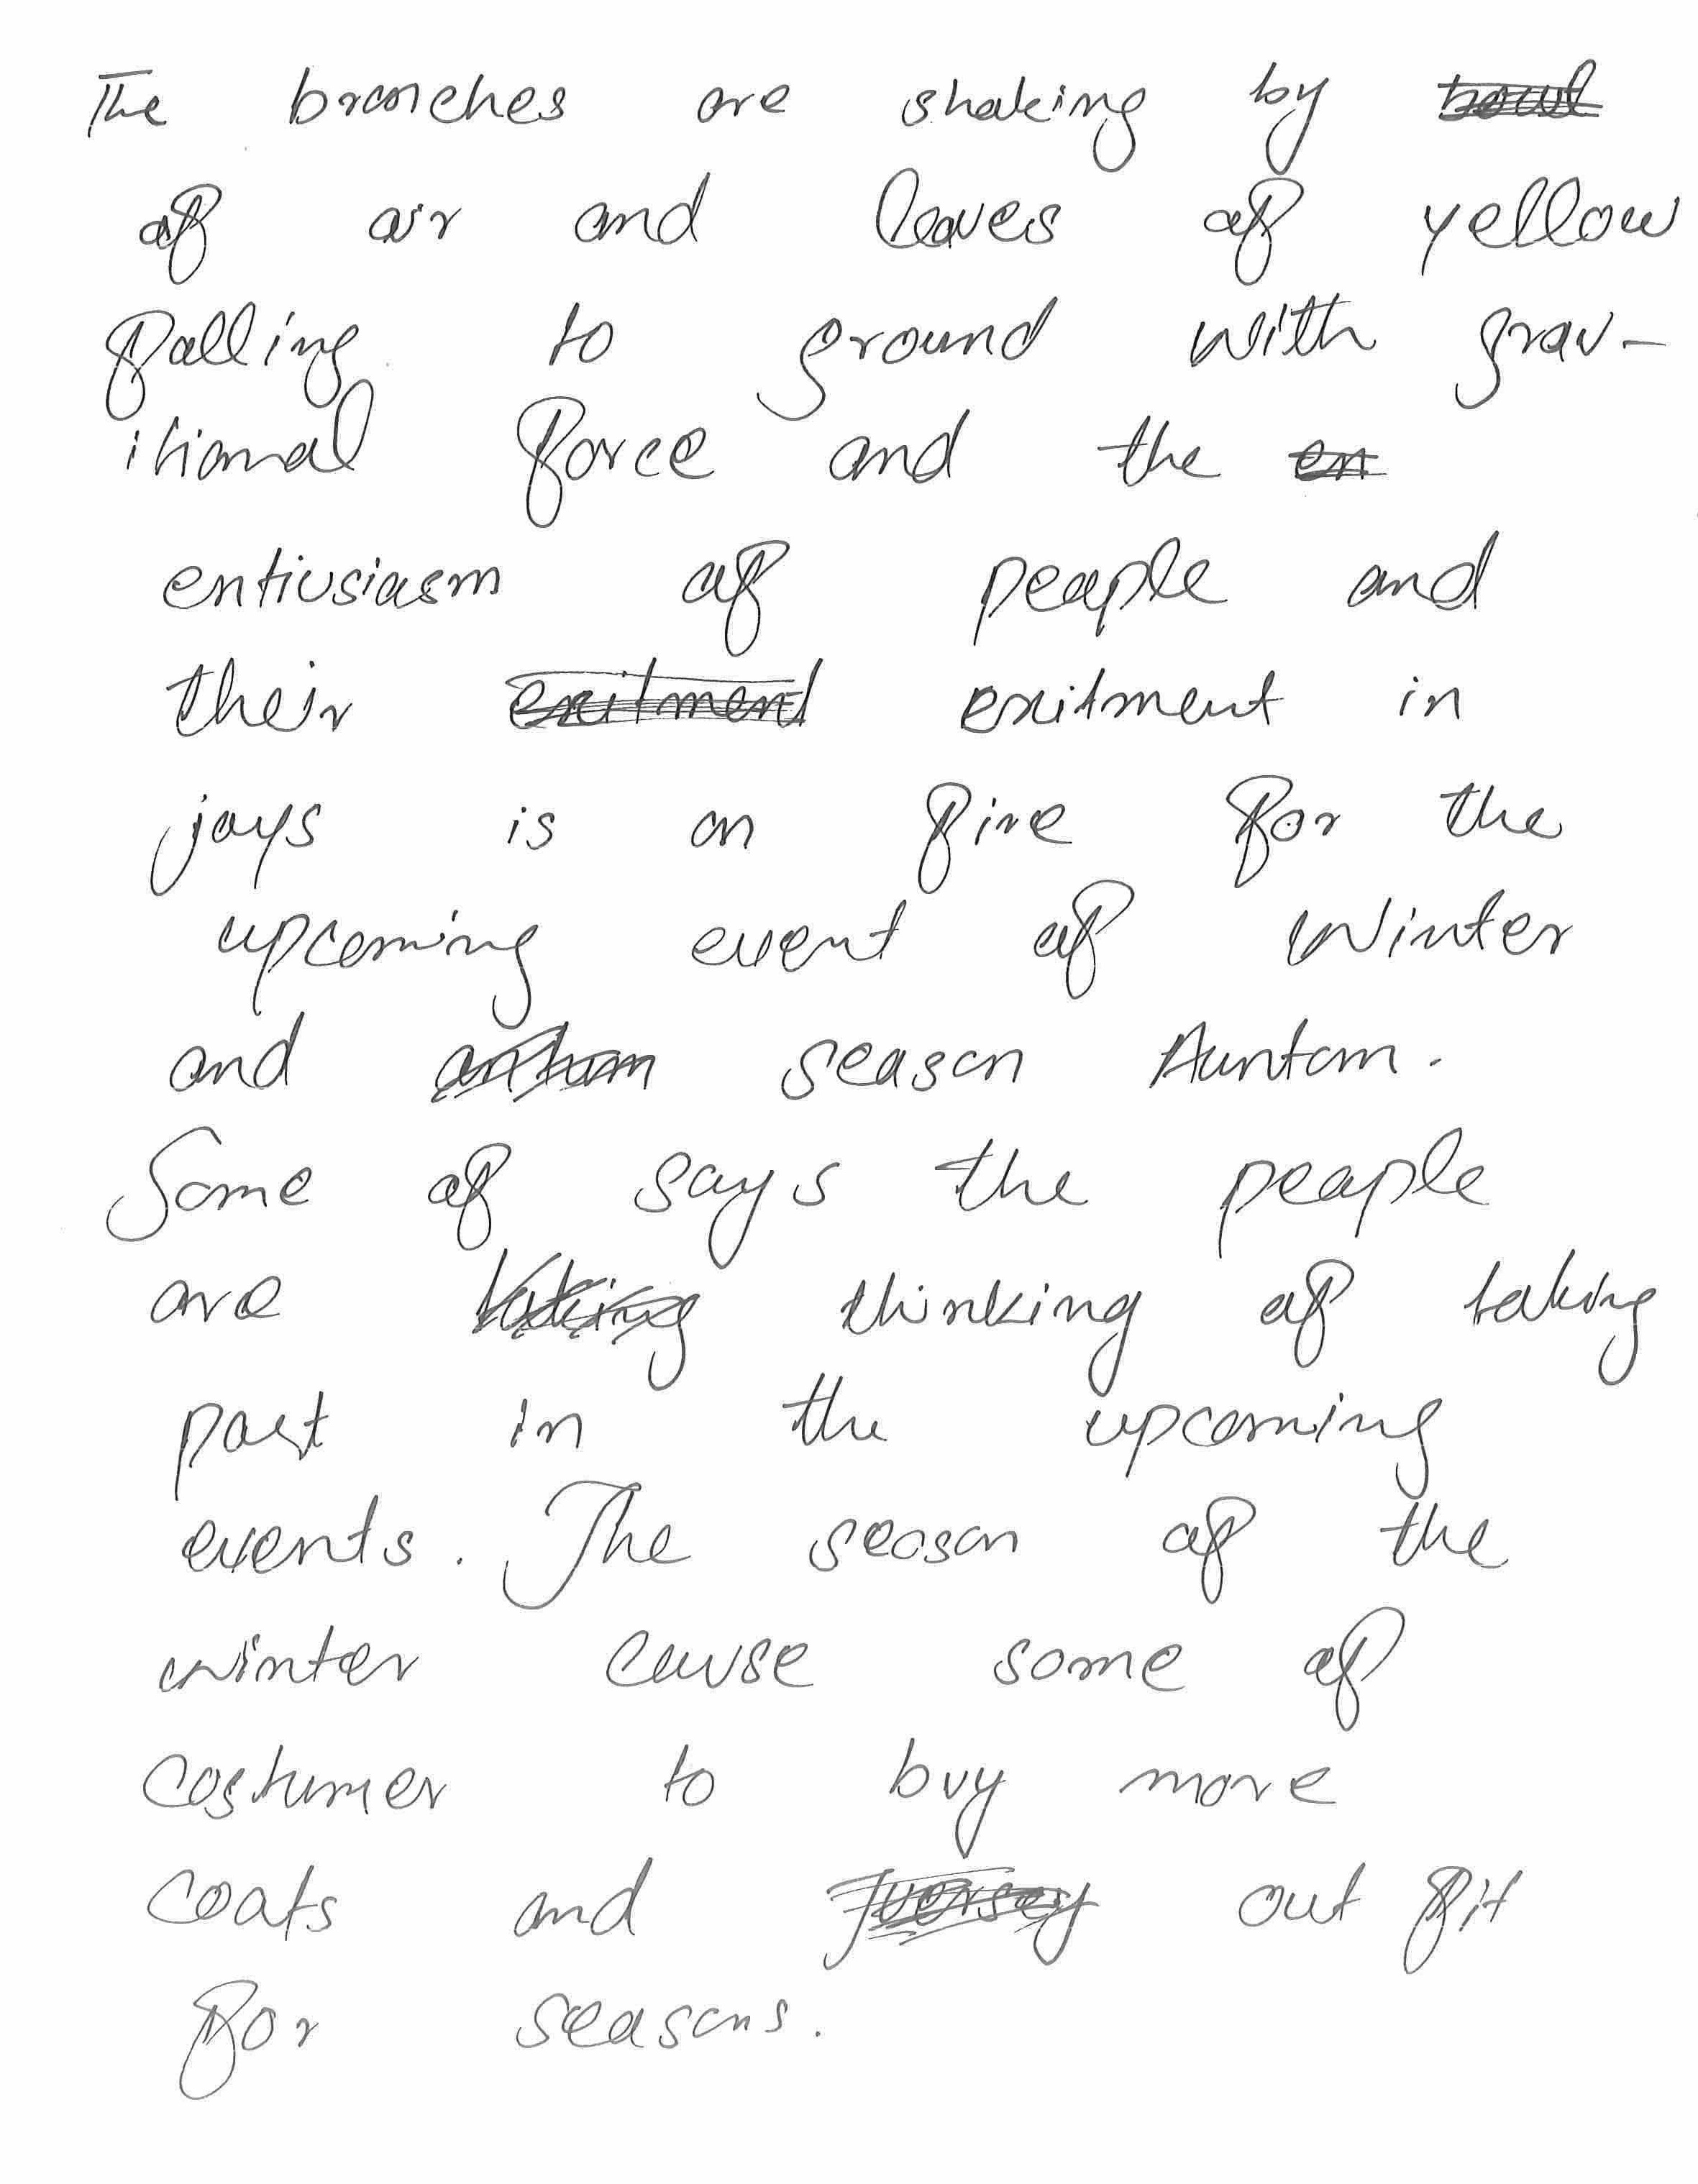 The branches are shaking by
of air and leaves of yellow
falling to ground with grav-
itional force and the en
entiusiasm of people and
their exitment exitment in
joys is on fire for the
upcoming event of winter
and season Auntom.
Some of says the people
are taking thinking of taking
part in the upcoming
events. The season of the
winter cause some of
costumer to buy more
coats and out fit
for seasons.